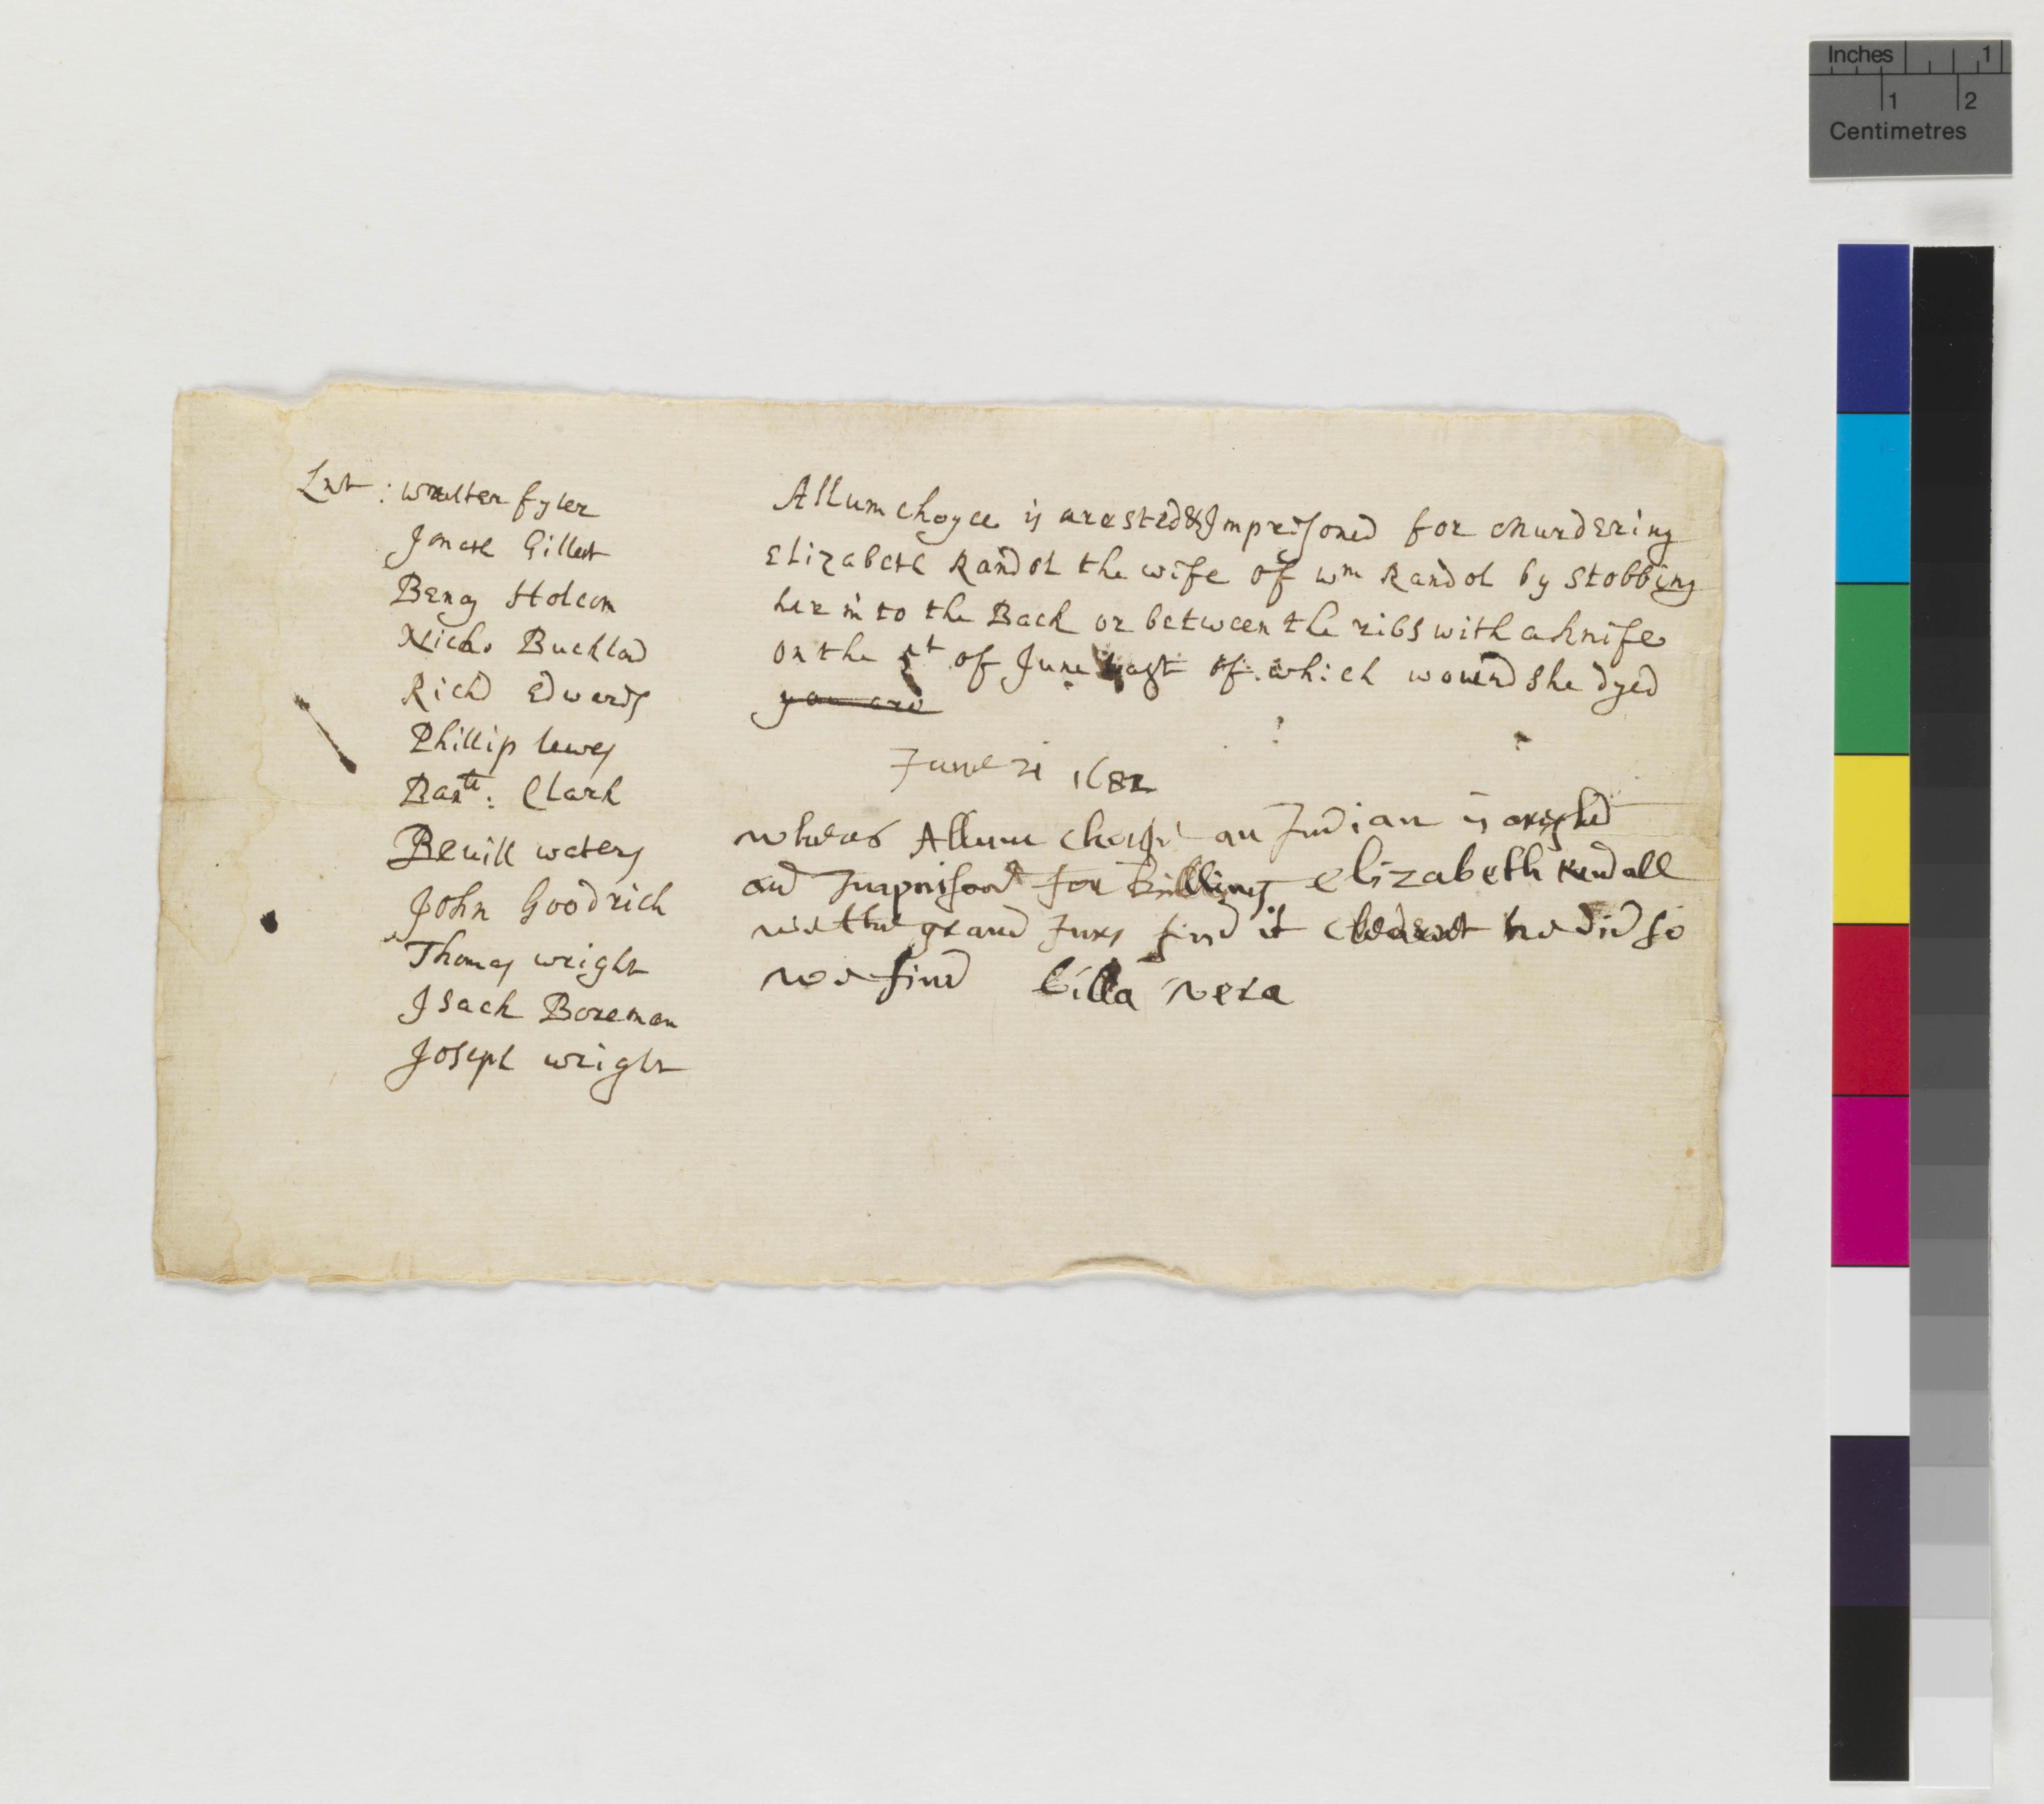 Lnt : walter fyler
Jonath Gillett
Beng Holcom
Nicho Buckland
Rich Edwards
Phillip lewes
Bartt : Clark
Beuill waters
John Goodrich
Thomas wright
Isack Boreman
Joseph wright
Allum choyce is arested & Imprisoned for Murdering
Elizabeth Randol the wife of wm Randol by Stobbing
her in to the Back or between the ribs with a knife
on the of June last of which wound she dyed
you are
June 21 1682
wheras Allum an Indian is arested
and Imprisond for killing elizabeth Kendall
we the grand Jury find it he did so
we find billa vera
Inches 1
1 2
Centimetres